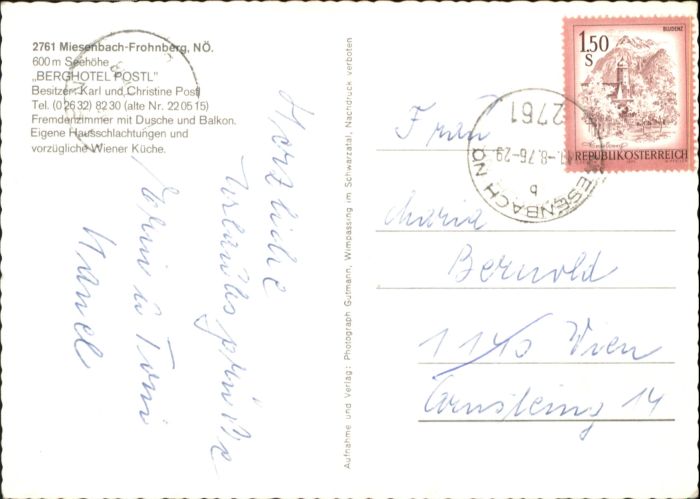 2761 Miesenbach-Frohnberg, NÖ.
600 m Seehöhe
„BERGHOTEL POSTL"
Besitzer: Karl und Christine Postl
Tel. (0 26 32) 82 30 (alte Nr. 22 05 15)
Fremdenzimmer mit Dusche und Balkon.
Eigene Hausschlachtungen und
vorzügliche Wiener Küche.
Herzliche
Urlaubsgrüße
u Toni
Aufnahme und Verlag: Photograph Gutmann, Wimpassing im Schwarzatal, Nachdruck verboten
BLUDENZ
1.50
S
REPUBLIK ÖSTERREICH
2761
MIESENBACH NÖ
.8.76-29
b
Frau
Maria
Bernold
1140 Wien
14